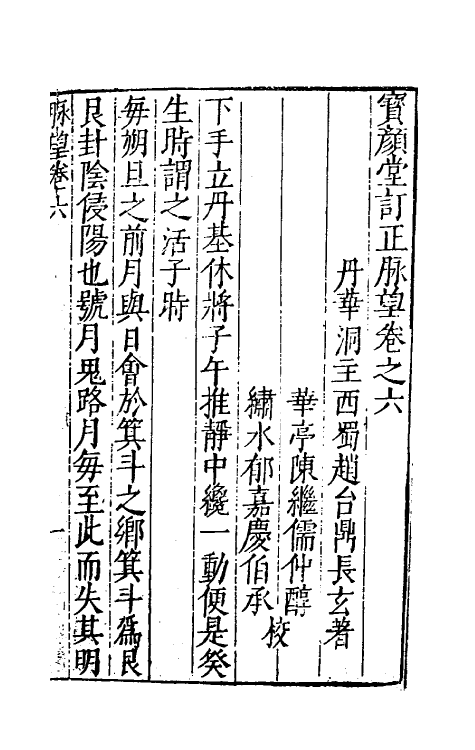 寶顏堂訂正脉望卷之六
丹華洞主西蜀趙台鼎長玄著
華亭陳繼儒仲醇
繡水郁嘉慶伯承校
下手立丹基休將子午推靜中纔一動便是癸
生時謂之活子時
每朔旦之前月與日會於箕斗之鄉箕斗爲艮
艮封陰侵陽也號月鬼路月每至此而失其明
脉望卷六
一